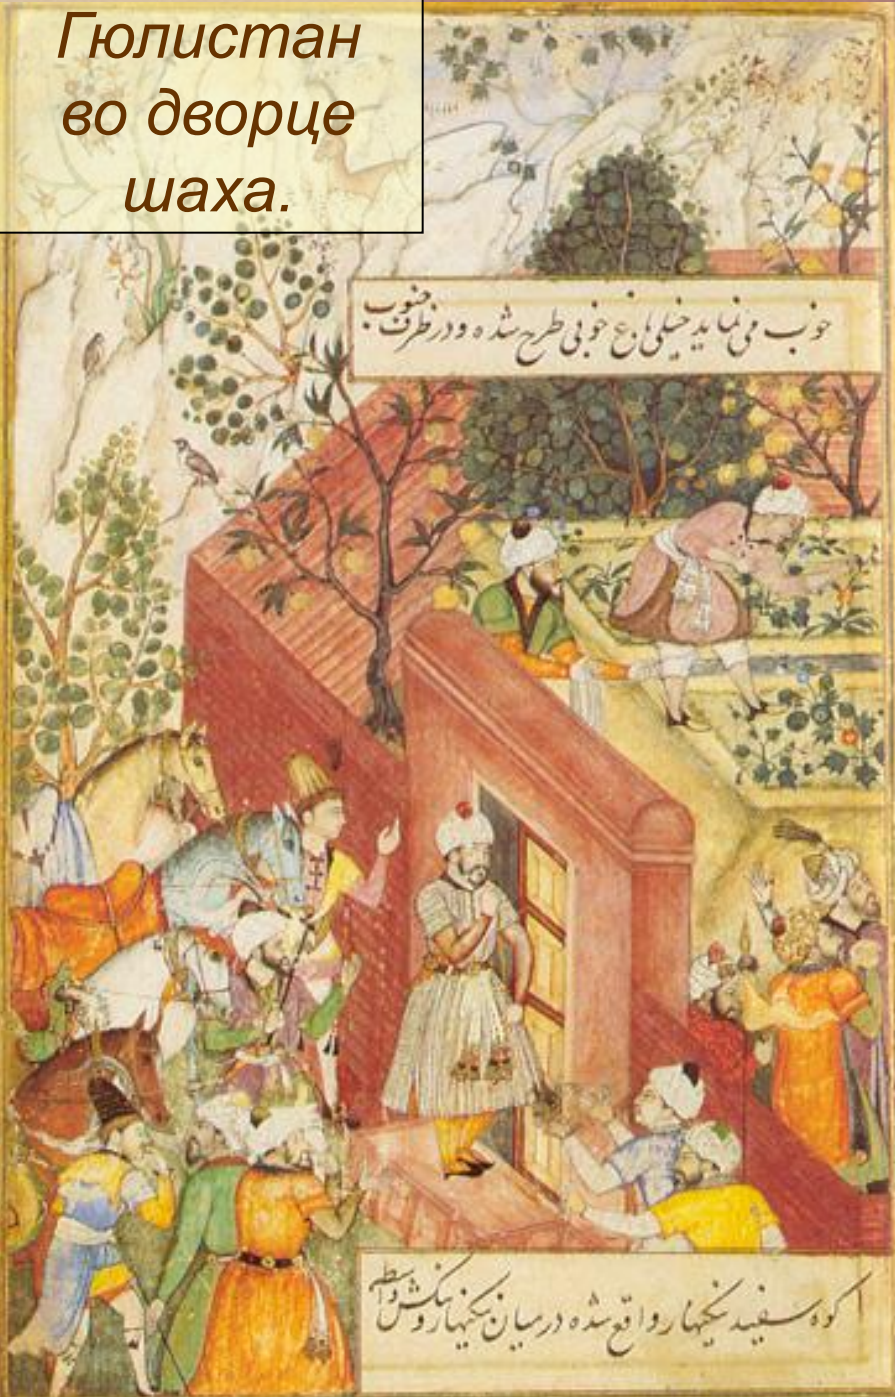 Гюлистан
во дворце
шаха.
خوب می نماید خیلی باغ خوبی طرح شده و در طرف جنوب
کوه سفید نیکنهار واقع شده در میان نیکنهار و بنکش واسطه